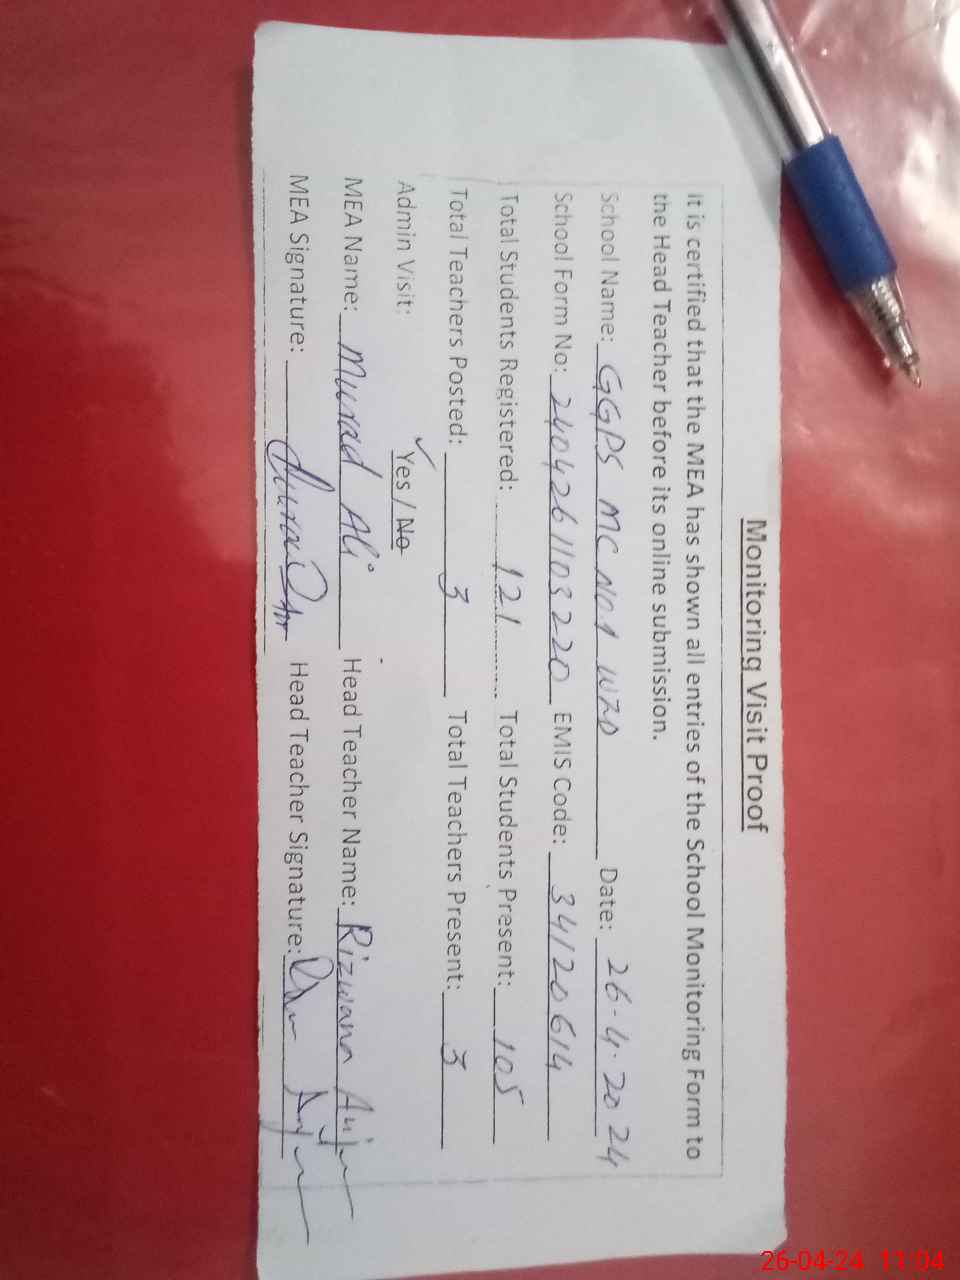 Monitoring Visit Proof
It is certified that the MEA has shown all entries of the School Monitoring Form to
the Head Teacher before its online submission.
School Name: GGPS MC NO1 WZD Date: 26-4-2024
School Form No: 2404261103220 EMIS Code: 34120614
Total Students Registered: 121 Total Students Present: 105
Total Teachers Posted: 3 Total Teachers Present: 3
Admin Visit: Yes / No
MEA Name: Murad Ali Head Teacher Name: Rizwana
MEA Signature: Head Teacher Signature:
26-04-24 11:04